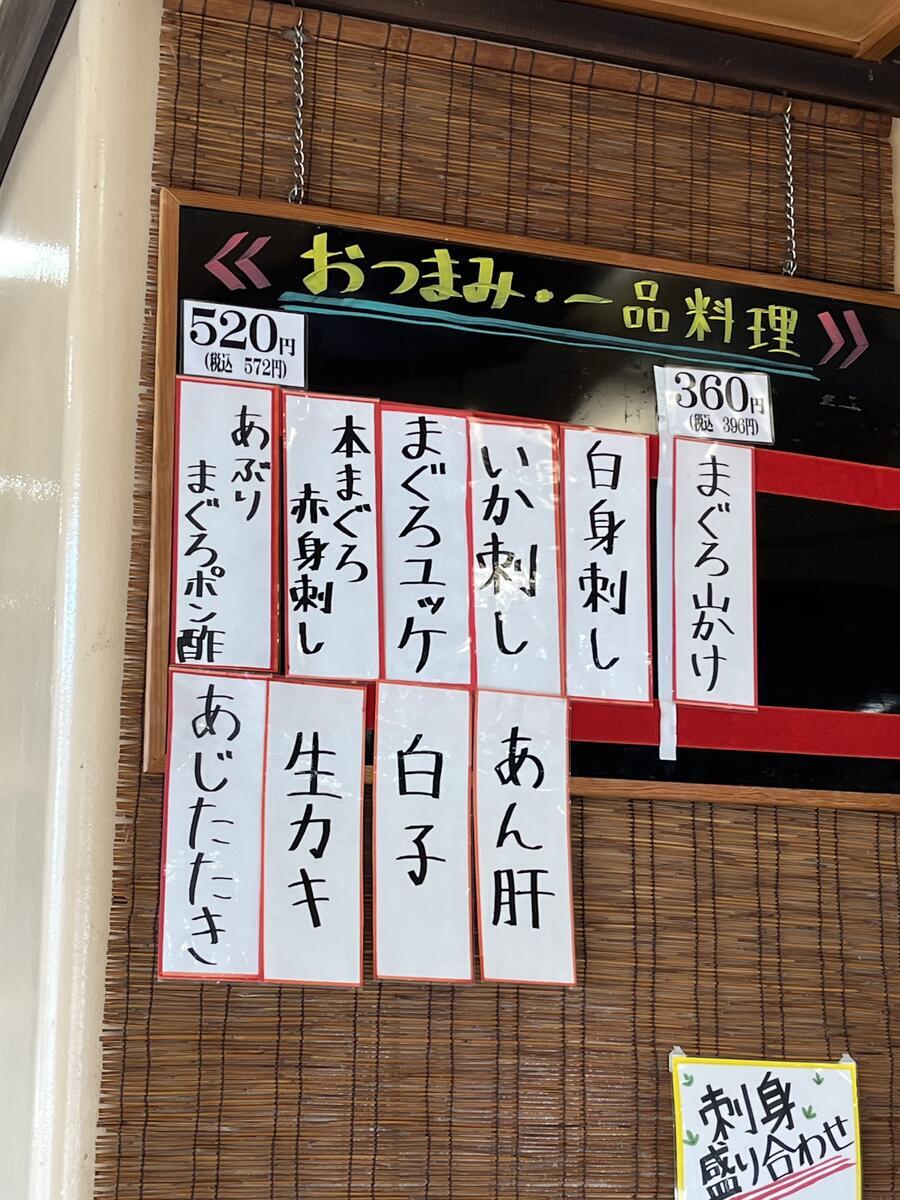 ≪おつまみ・一品料理≫
520円
(税込 572円)
360円
(税込 396円)
まぐろ山かけ
白身刺し
いか刺し
まぐろユッケ
本まぐろ
赤身刺し
あぶり
まぐろポン酢
あん肝
白子
生カキ
あじたたき
刺身
盛り合わせ